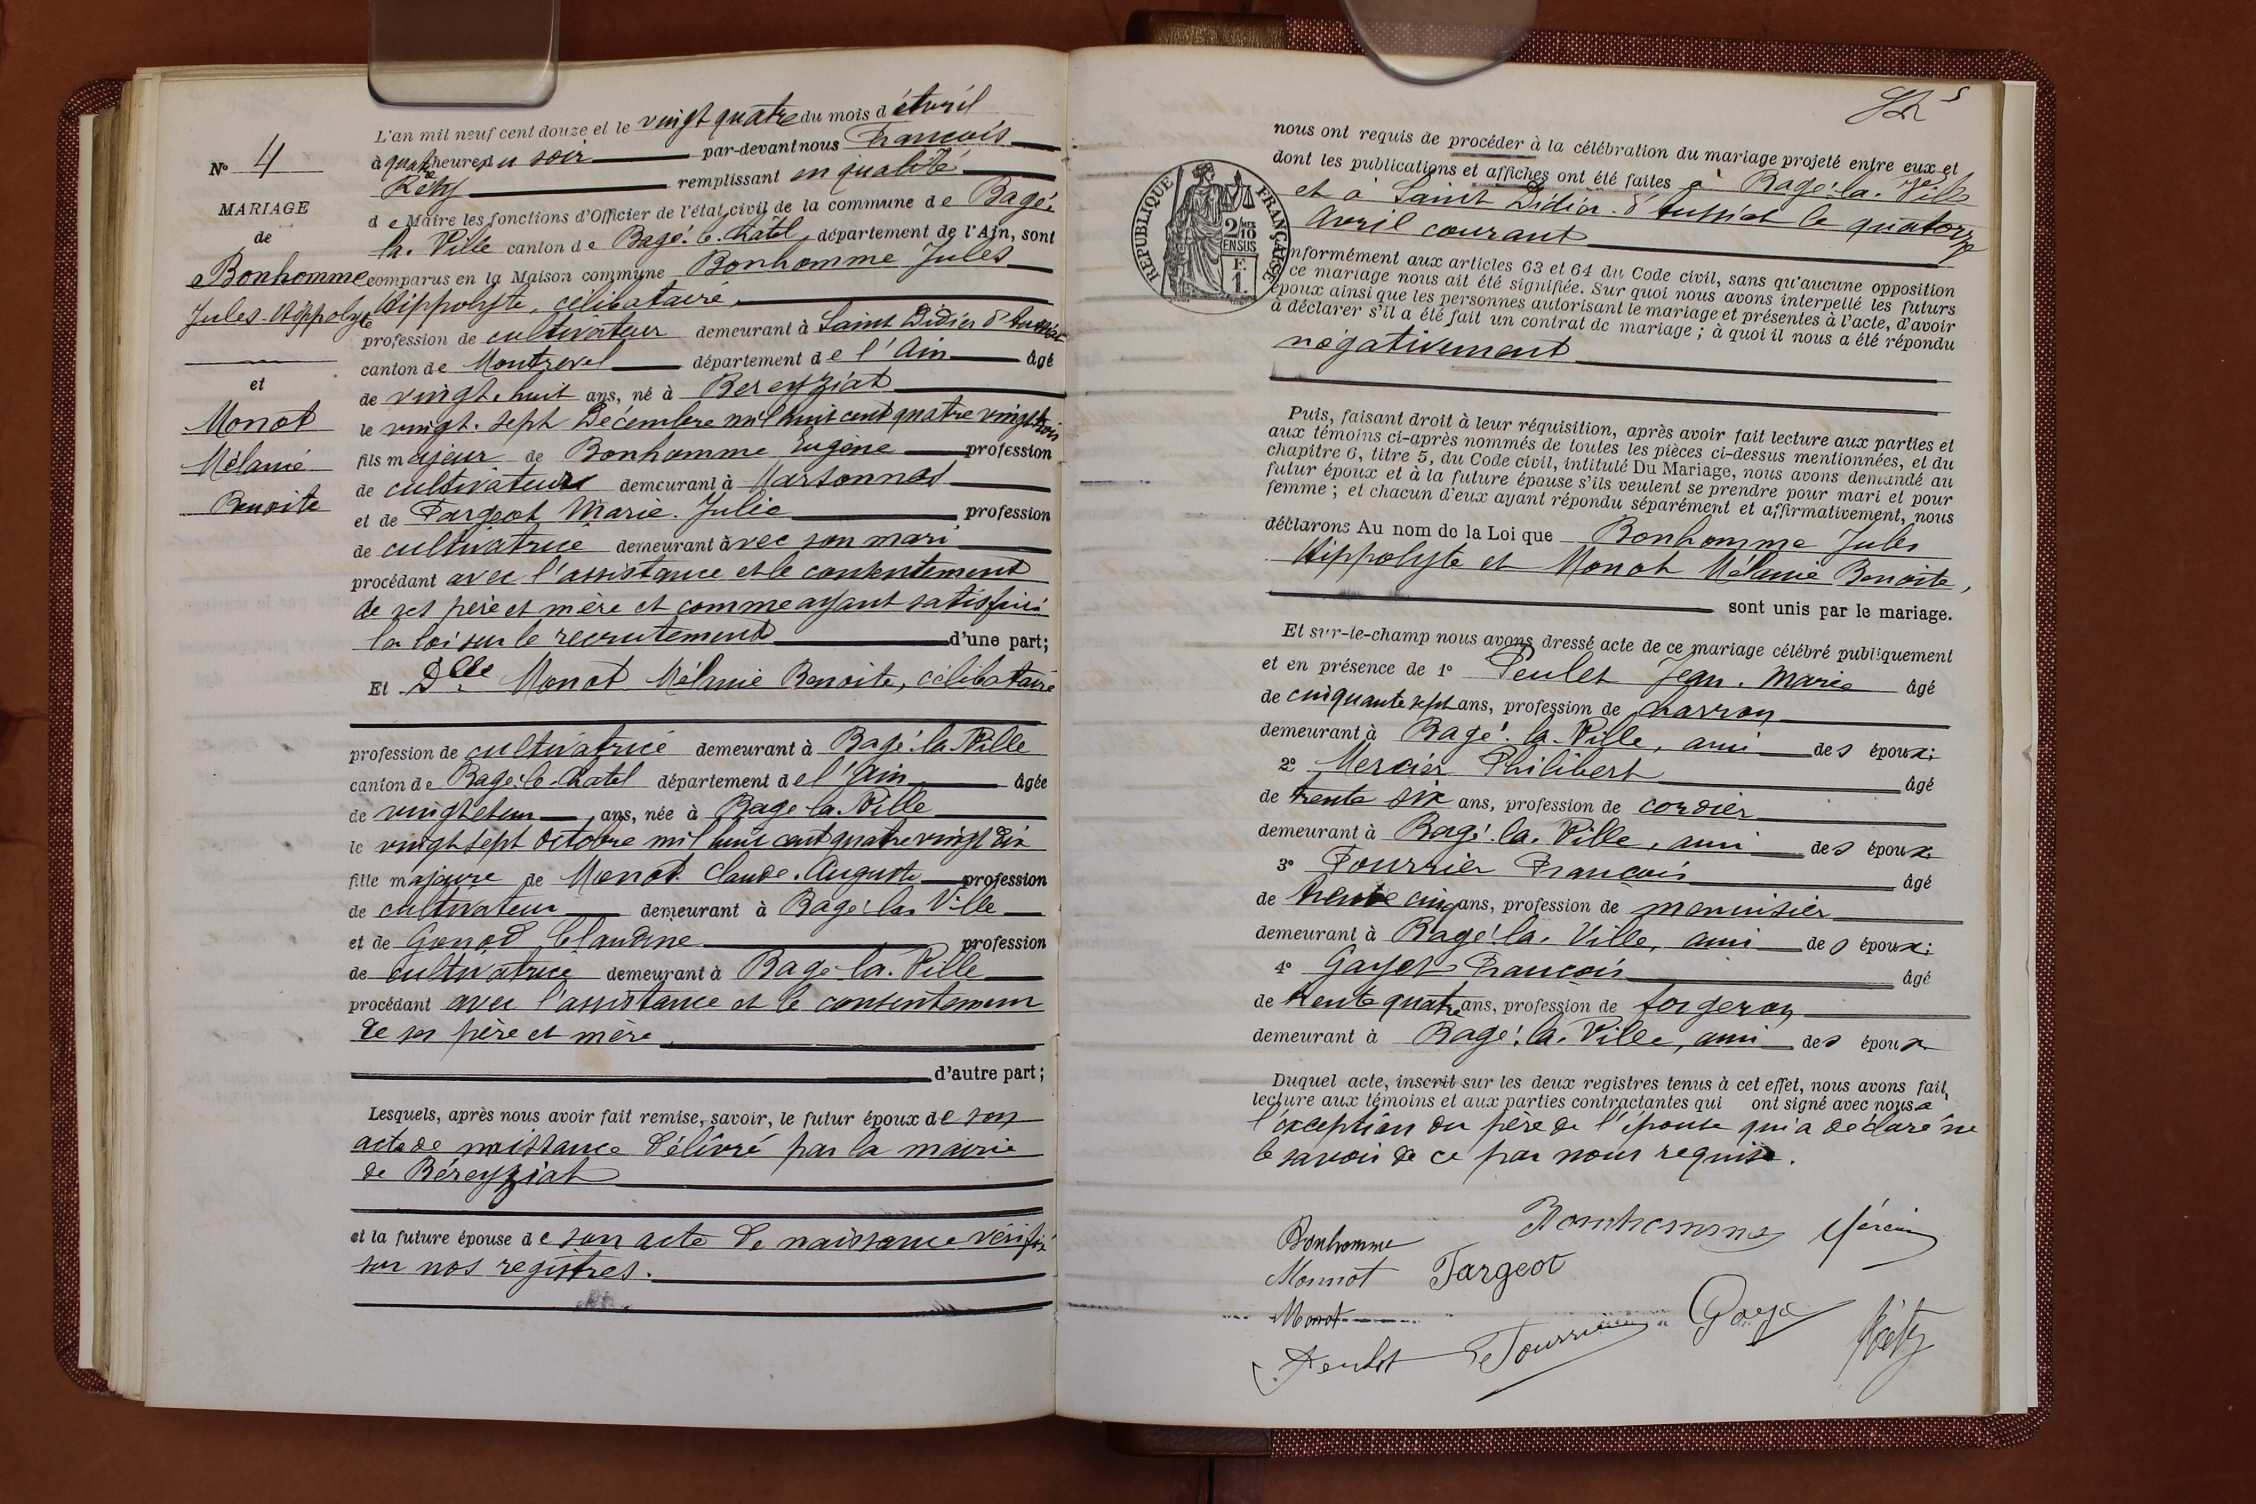 N° 4
MARIAGE
de
Bonhomme
Jules-Hippolyte
et
Monot
Mélanie
Benoite
L'an mil neuf cent douze et le vingt quatre du mois d'Avril
à quatre heures du soir par-devant nous François
Réty remplissant en qualité
de Maire les fonctions d'Officier de l'état civil de la commune de Bagé-
la-Ville canton de Bagé-le-Châtel, département de l'Ain, sont
comparus en la Maison commune Bonhomme Jules
Hippolyte, célibataire
profession de cultivateur demeurant à Saint Didier d'Aussiat
canton de Montrevel département de l'Ain âgé
de vingt-huit ans, né à Bereyziat
le vingt-sept Décembre mil huit cent quatre vingt trois
fils majeur de Bonhomme Eugène profession
de cultivateur demeurant à Marsonnas
et de Fargeot Marie-Julie profession
de cultivatrice demeurant avec son mari
procédant avec l'assistance et le consentement
de ses père et mère et comme ayant satisfait à
la loi sur le recrutement d'une part;
Et Dlle Monot Mélanie Benoite, célibataire
profession de cultivatrice demeurant à Bagé-la-Ville
canton de Bagé-le-Chatel département de l'Ain âgée
de vingt et un ans, née à Bagé-la-Ville
le vingt sept Octobre mil huit cent quatre vingt dix
fille majeure de Monot Claude-Auguste profession
de cultivateur demeurant à Bagé-la-Ville
et de Gonod Claudine profession
de cultivatrice demeurant à Bagé-la-Ville
procédant avec l'assistance et le consentement
de ses père et mère
d'autre part;
Lesquels, après nous avoir fait remise, savoir, le futur époux de son
acte de naissance délivré par la mairie
de Béreyziat
et la future épouse de son acte de naissance vérifié
sur nos registres.
nous ont requis de procéder à la célébration du mariage projeté entre eux et
dont les publications et affiches ont été faites à Bagé-la-Ville
et à Saint Didier-d'Aussiat le quatorze
avril courant
RÉPUBLIQUE FRANÇAISE
2/10
EN SUS
F.
1.
nformément aux articles 63 et 64 du Code civil, sans qu'aucune opposition
ce mariage nous ait été signifiée. Sur quoi nous avons interpellé les futurs
époux ainsi que les personnes autorisant le mariage et présentes à l'acte, d'avoir
à déclarer s'il a été fait un contrat de mariage; à quoi il nous a été répondu
négativement
Puis, faisant droit à leur réquisition, après avoir fait lecture aux parties et
aux témoins ci-après nommés de toutes les pièces ci-dessus mentionnées, et du
chapitre 6, titre 5, du Code civil, intitulé Du Mariage, nous avons demandé au
futur époux et à la future épouse s'ils veulent se prendre pour mari et pour
femme; et chacun d'eux ayant répondu séparément et affirmativement, nous
déclarons Au nom de la Loi que Bonhomme Jules
Hippolyte et Monot Mélanie Benoite,
sont unis par le mariage.
Et sur-le-champ nous avons dressé acte de ce mariage célébré publiquement
et en présence de 1° Peulet Jean-Marie âgé
de cinquante sept ans, profession de charron
demeurant à Bagé-la-Ville, ami des époux;
2° Mercier Philibert âgé
de trente six ans, profession de cordier
demeurant à Bagé-la-Ville, ami des époux
3° Fourrier François âgé
de trente cinq ans, profession de menuisier
demeurant à Bagé-la-Ville, ami des époux;
4° Gayet François âgé
de trente quatre ans, profession de forgeron
demeurant à Bagé-la-Ville, ami des époux
Duquel acte, inscrit sur les deux registres tenus à cet effet, nous avons fait
lecture aux témoins et aux parties contractantes qui ont signé avec nous à
l'exception du père de l'épouse qui a déclaré ne
le savoir de ce par nous requis.
Bonhomme Bonhomme Mercier
Monnot Fargeot
Monot
Peulet Fourrier Gayet Réty